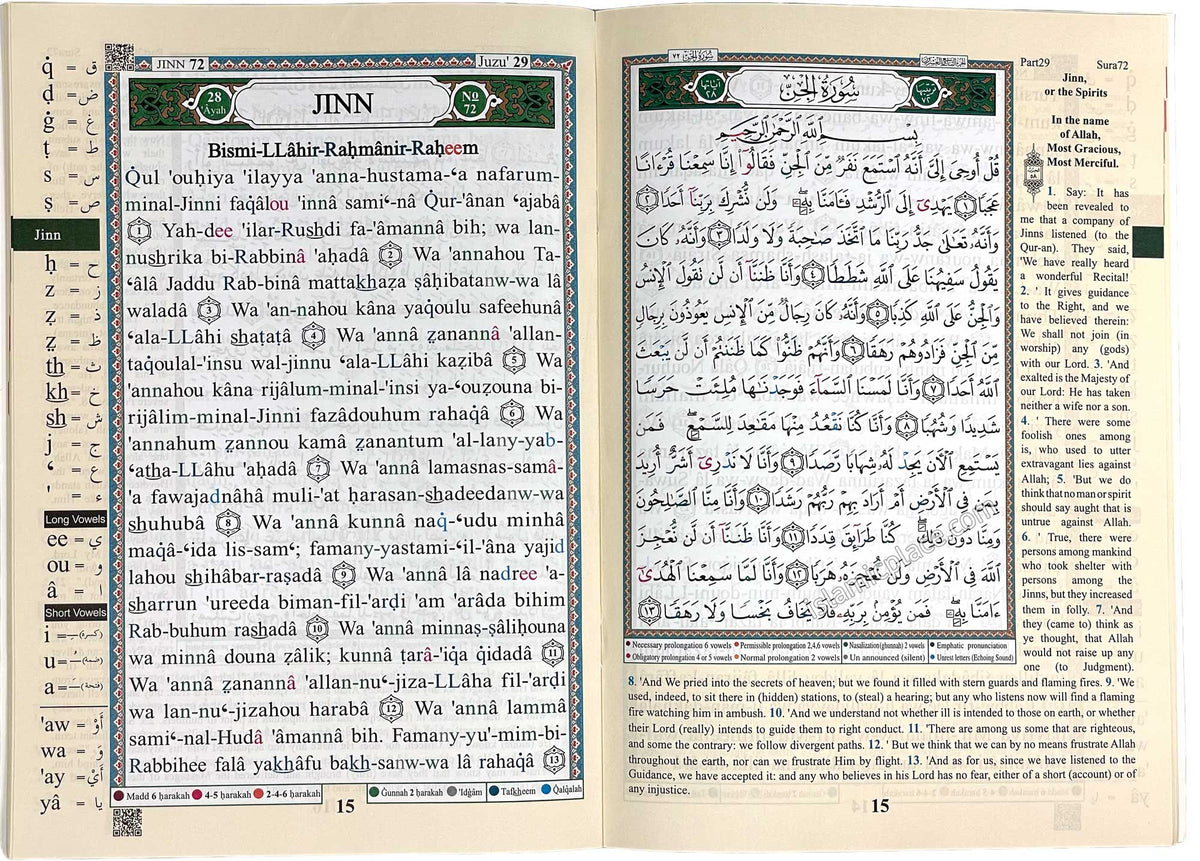 q̇ = ق
ḍ = ض
ġ = غ
ṭ = ط
s = س
ṣ = ص
Jinn
ḥ = ح
z = ز
ẓ = ذ
ẓ = ظ
th = ث
kh = خ
sh = ش
j = ج
ʻ = ع
' = ء
Long Vowels
ee = ي
ou = و
â = ا
Short Vowels
i = (كسرة)
u = (ضمة)
a = (فتحة)
'aw = أَوْ
wa = وَ
'ay = أَيْ
yâ = يا
JINN 72
Juzu' 29
28
'Âyah
JINN
No
72
Bismi-LLâhir-Raḥmânir-Raḥeem
Q̇ul 'ouḥiya 'ilayya 'anna-hustama-ʻa nafarum-
minal-Jinni faq̇âlou 'innâ samiʻ-nâ Q̇ur-'ânan ʻajabâ
1 Yah-dee 'ilar-Rushdi fa-'âmannâ bih; wa lan-
nushrika bi-Rabbinâ 'aḥadâ 2 Wa 'annahou Ta-
ʻâlâ Jaddu Rab-binâ mattakhaẓa ṣâḥibatanw-wa lâ
waladâ 3 Wa 'an-nahou kâna yaq̇oulu safeehunâ
ʻala-LLâhi shaṭaṭâ 4 Wa 'annâ ẓanannâ 'allan-
taq̇oulal-'insu wal-jinnu ʻala-LLâhi kaẓibâ 5 Wa
'annahou kâna rijâlum-minal-'insi ya-ʻouẓouna bi-
rijâlim-minal-Jinni fazâdouhum rahaq̇â 6 Wa
'annahum ẓannou kamâ ẓanantum 'al-lany-yab-
ʻatha-LLâhu 'aḥadâ 7 Wa 'annâ lamasnas-samâ-
'a fawajadnâhâ muli-'at ḥarasan-shadeedanw-wa
shuhubâ 8 Wa 'annâ kunnâ naq̇-ʻudu minhâ
maq̇â-ʻida lis-samʻ; famany-yastami-ʻil-'âna yajid
lahou shihâbar-raṣadâ 9 Wa 'annâ lâ nadree 'a-
sharrun 'ureeda biman-fil-'arḍi 'am 'arâda bihim
Rab-buhum rashadâ 10 Wa 'annâ minnaṣ-ṣâliḥouna
wa minnâ douna ẓâlik; kunnâ ṭarâ-'iq̇a q̇idadâ 11
Wa 'annâ ẓanannâ 'allan-nuʻ-jiza-LLâha fil-'arḍi
wa lan-nuʻ-jizahou harabâ 12 Wa 'annâ lammâ
samiʻ-nal-Hudâ 'âmannâ bih. Famany-yu'-mim-bi-
Rabbihee falâ yakhâfu bakh-sanw-wa lâ rahaq̇â 13
Madd 6 ḥarakah 4-5 ḥarakah 2-4-6 ḥarakah
Ġunnah 2 ḥarakah 'Idġâm Tafkheem Q̇alq̇alah
15
سُورَةُ الجِنّ ٧٢
الجزء التاسع والعشرون
آياتها
٢٨
سُورَةُ الجِنّ
ترتيبها
٧٢
بِسْمِ اللَّهِ الرَّحْمَٰنِ الرَّحِيمِ
قُلْ أُوحِيَ إِلَيَّ أَنَّهُ اسْتَمَعَ نَفَرٌ مِّنَ الْجِنِّ فَقَالُوا إِنَّا سَمِعْنَا قُرْءَانًا
عَجَبًا ١ يَهْدِي إِلَى الرُّشْدِ فَـَٔامَنَّا بِهِۦ وَلَن نُّشْرِكَ بِرَبِّنَا أَحَدًا ٢
وَأَنَّهُ تَعَٰلَىٰ جَدُّ رَبِّنَا مَا اتَّخَذَ صَٰحِبَةً وَلَا وَلَدًا ٣ وَأَنَّهُ كَانَ
يَقُولُ سَفِيهُنَا عَلَى اللَّهِ شَطَطًا ٤ وَأَنَّا ظَنَنَّا أَن لَّن تَقُولَ الْإِنسُ
وَالْجِنُّ عَلَى اللَّهِ كَذِبًا ٥ وَأَنَّهُ كَانَ رِجَالٌ مِّنَ الْإِنسِ يَعُوذُونَ بِرِجَالٍ
مِّنَ الْجِنِّ فَزَادُوهُمْ رَهَقًا ٦ وَأَنَّهُمْ ظَنُّوا كَمَا ظَنَنتُمْ أَن لَّن يَبْعَثَ
اللَّهُ أَحَدًا ٧ وَأَنَّا لَمَسْنَا السَّمَاءَ فَوَجَدْنَٰهَا مُلِئَتْ حَرَسًا
شَدِيدًا وَشُهُبًا ٨ وَأَنَّا كُنَّا نَقْعُدُ مِنْهَا مَقَٰعِدَ لِلسَّمْعِ فَمَن
يَسْتَمِعِ الْـَٔانَ يَجِدْ لَهُ شِهَابًا رَّصَدًا ٩ وَأَنَّا لَا نَدْرِي أَشَرٌّ أُرِيدَ
بِمَن فِي الْأَرْضِ أَمْ أَرَادَ بِهِمْ رَبُّهُمْ رَشَدًا ١٠ وَأَنَّا مِنَّا الصَّٰلِحُونَ
وَمِنَّا دُونَ ذَٰلِكَ كُنَّا طَرَائِقَ قِدَدًا ١١ وَأَنَّا ظَنَنَّا أَن لَّن نُّعْجِزَ
اللَّهَ فِي الْأَرْضِ وَلَن نُّعْجِزَهُ هَرَبًا ١٢ وَأَنَّا لَمَّا سَمِعْنَا الْهُدَىٰ
ءَامَنَّا بِهِۦ فَمَن يُؤْمِن بِرَبِّهِۦ فَلَا يَخَافُ بَخْسًا وَلَا رَهَقًا ١٣
Necessary prolongation 6 vowels Permissible prolongation 2,4,6 vowels Nasalization (ghunnah) 2 vowels Emphatic pronunciation
Obligatory prolongation 4 or 5 vowels Normal prolongation 2 vowels Un announced (silent) Unrest letters (Echoing Sound)
Part29 Sura72
Jinn,
or the Spirits
In the name
of Allah,
Most Gracious,
Most Merciful.
1. Say: It has
been revealed to
me that a company of
Jinns listened (to the
Qur-an). They said,
'We have really heard
a wonderful Recital!
2. ' It gives guidance
to the Right, and we
have believed therein:
We shall not join (in
worship) any (gods)
with our Lord. 3. 'And
exalted is the Majesty of
our Lord: He has taken
neither a wife nor a son.
4. ' There were some
foolish ones among
is, who used to utter
extravagant lies against
Allah; 5. 'But we do
think that no man or spirit
should say aught that is
untrue against Allah.
6. ' True, there were
persons among mankind
who took shelter with
persons among the
Jinns, but they increased
them in folly. 7. 'And
they (came to) think as
ye thought, that Allah
would not raise up any
one (to Judgment).
8. 'And We pried into the secrets of heaven; but we found it filled with stern guards and flaming fires. 9. 'We
used, indeed, to sit there in (hidden) stations, to (steal) a hearing; but any who listens now will find a flaming
fire watching him in ambush. 10. 'And we understand not whether ill is intended to those on earth, or whether
their Lord (really) intends to guide them to right conduct. 11. 'There are among us some that are righteous,
and some the contrary: we follow divergent paths. 12. ' But we think that we can by no means frustrate Allah
throughout the earth, nor can we frustrate Him by flight. 13. 'And as for us, since we have listened to the
Guidance, we have accepted it: and any who believes in his Lord has no fear, either of a short (account) or of
any injustice.
15
islamicplace.com